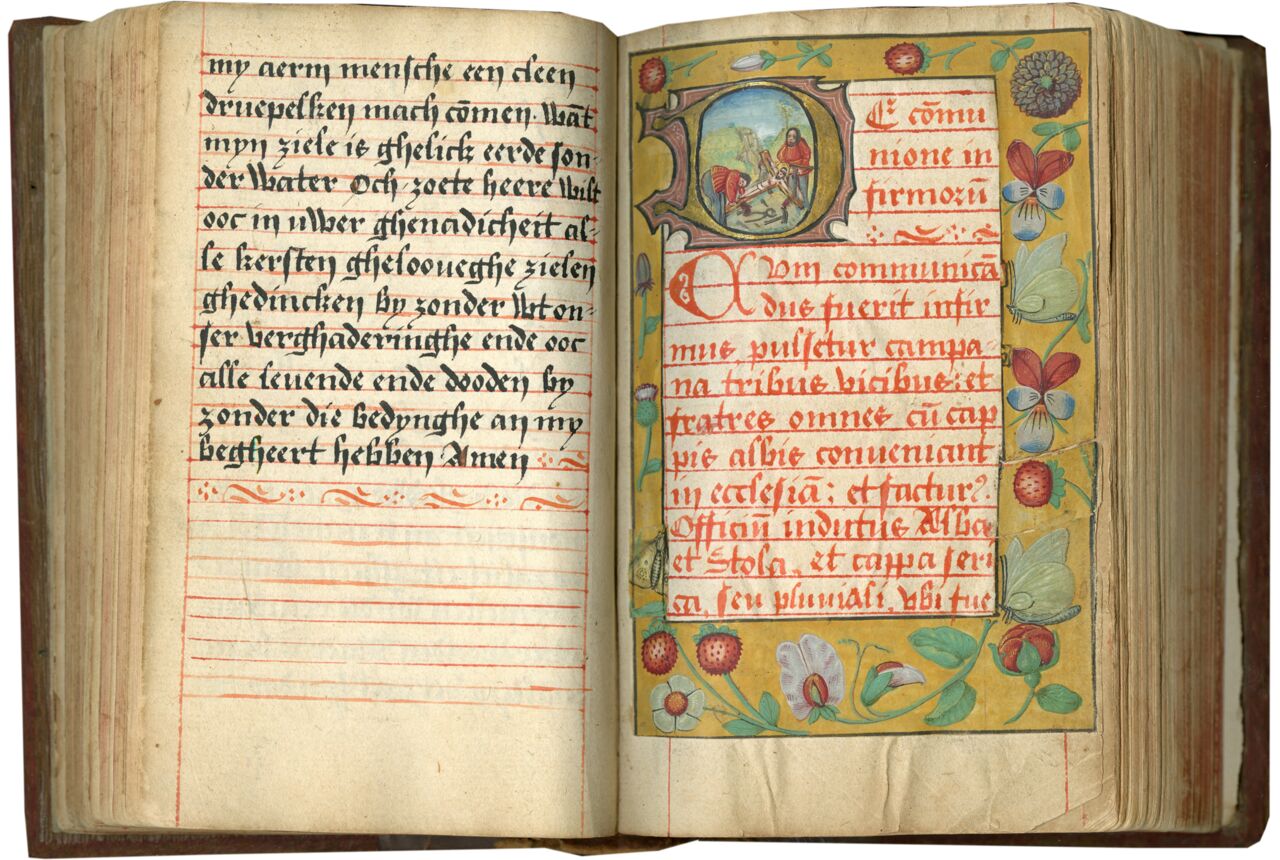 my aerm mensche een cleen
druepelken mach cōmen. Wāt
myn ziele is ghelick eerde son-
der water Och zoete heere wilt
ooc in uwer ghenadicheit al-
le kersten ghelooveghe zielen
ghedincken by zonder wt on-
ser verghaderinghe ende ooc
alle levende ende dooden by
zonder die bedynghe an my
begheert hebben Amen
DE cōmu
nione in
firmorū
CVm communicā
dus fuerit infir
mus pulsetur campa-
na tribus vicibus: et
fratres omnes cū cap
pis albis conveniant
in ecclesiā: et facturꝰ.
Officiū indutus Alba
et Stola, et cappa seri
ca, seu pluviali, vbi fue